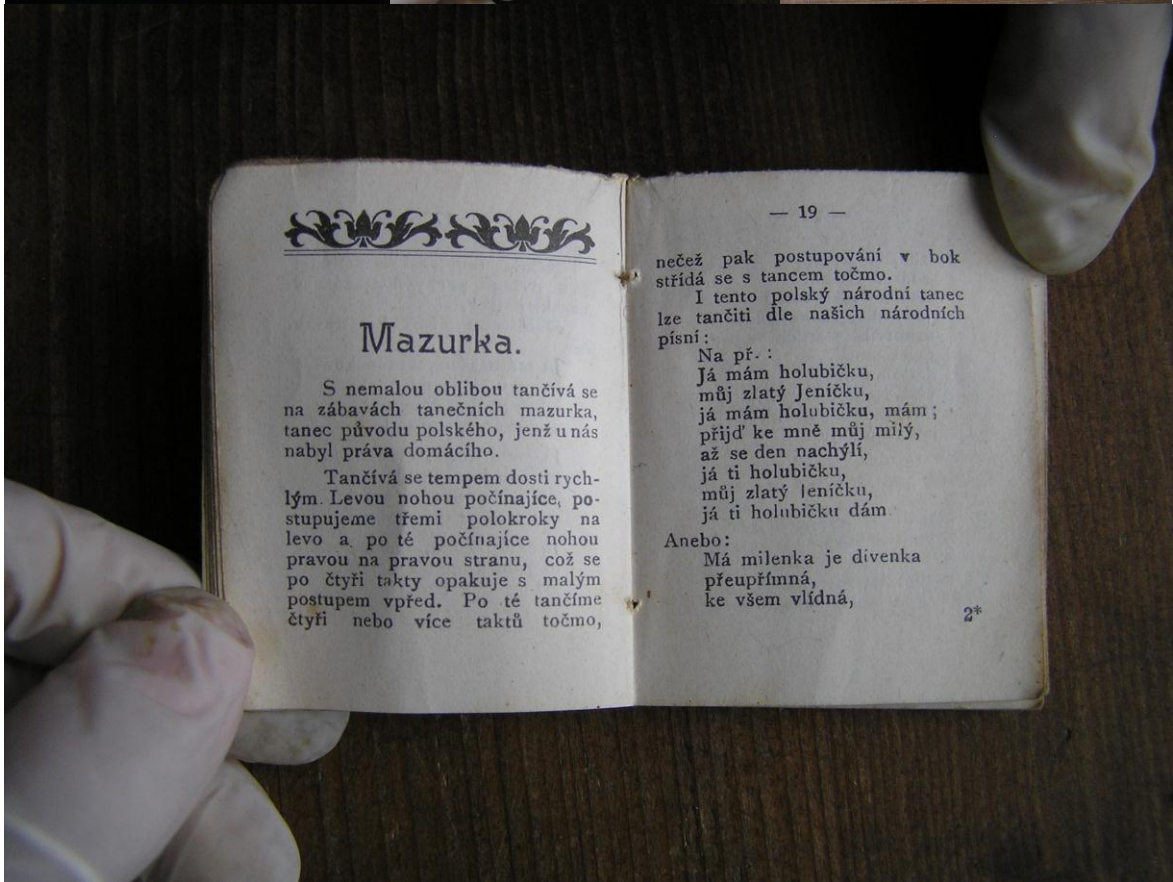 Mazurka.
S nemalou oblibou tančívá se
na zábavách tanečních mazurka,
tanec původu polského, jenž u nás
nabyl práva domácího.
Tančívá se tempem dosti rych-
lým. Levou nohou počínajíce, po-
stupujeme třemi polokroky na
levo a po té počínajíce nohou
pravou na pravou stranu, což se
po čtyři takty opakuje s malým
postupem vpřed. Po té tančíme
čtyři nebo více taktů točmo,
— 19 —
nečež pak postupování v bok
střídá se s tancem točmo.
I tento polský národní tanec
lze tančiti dle našich národních
písní:
Na př. :
Já mám holubičku,
můj zlatý Jeníčku,
já mám holubičku, mám;
přijď ke mně můj milý,
až se den nachýlí,
já ti holubičku,
můj zlatý Jeníčku,
já ti holubičku dám
Anebo:
Má milenka je divenka
přeupřímná,
ke všem vlídná,
2*